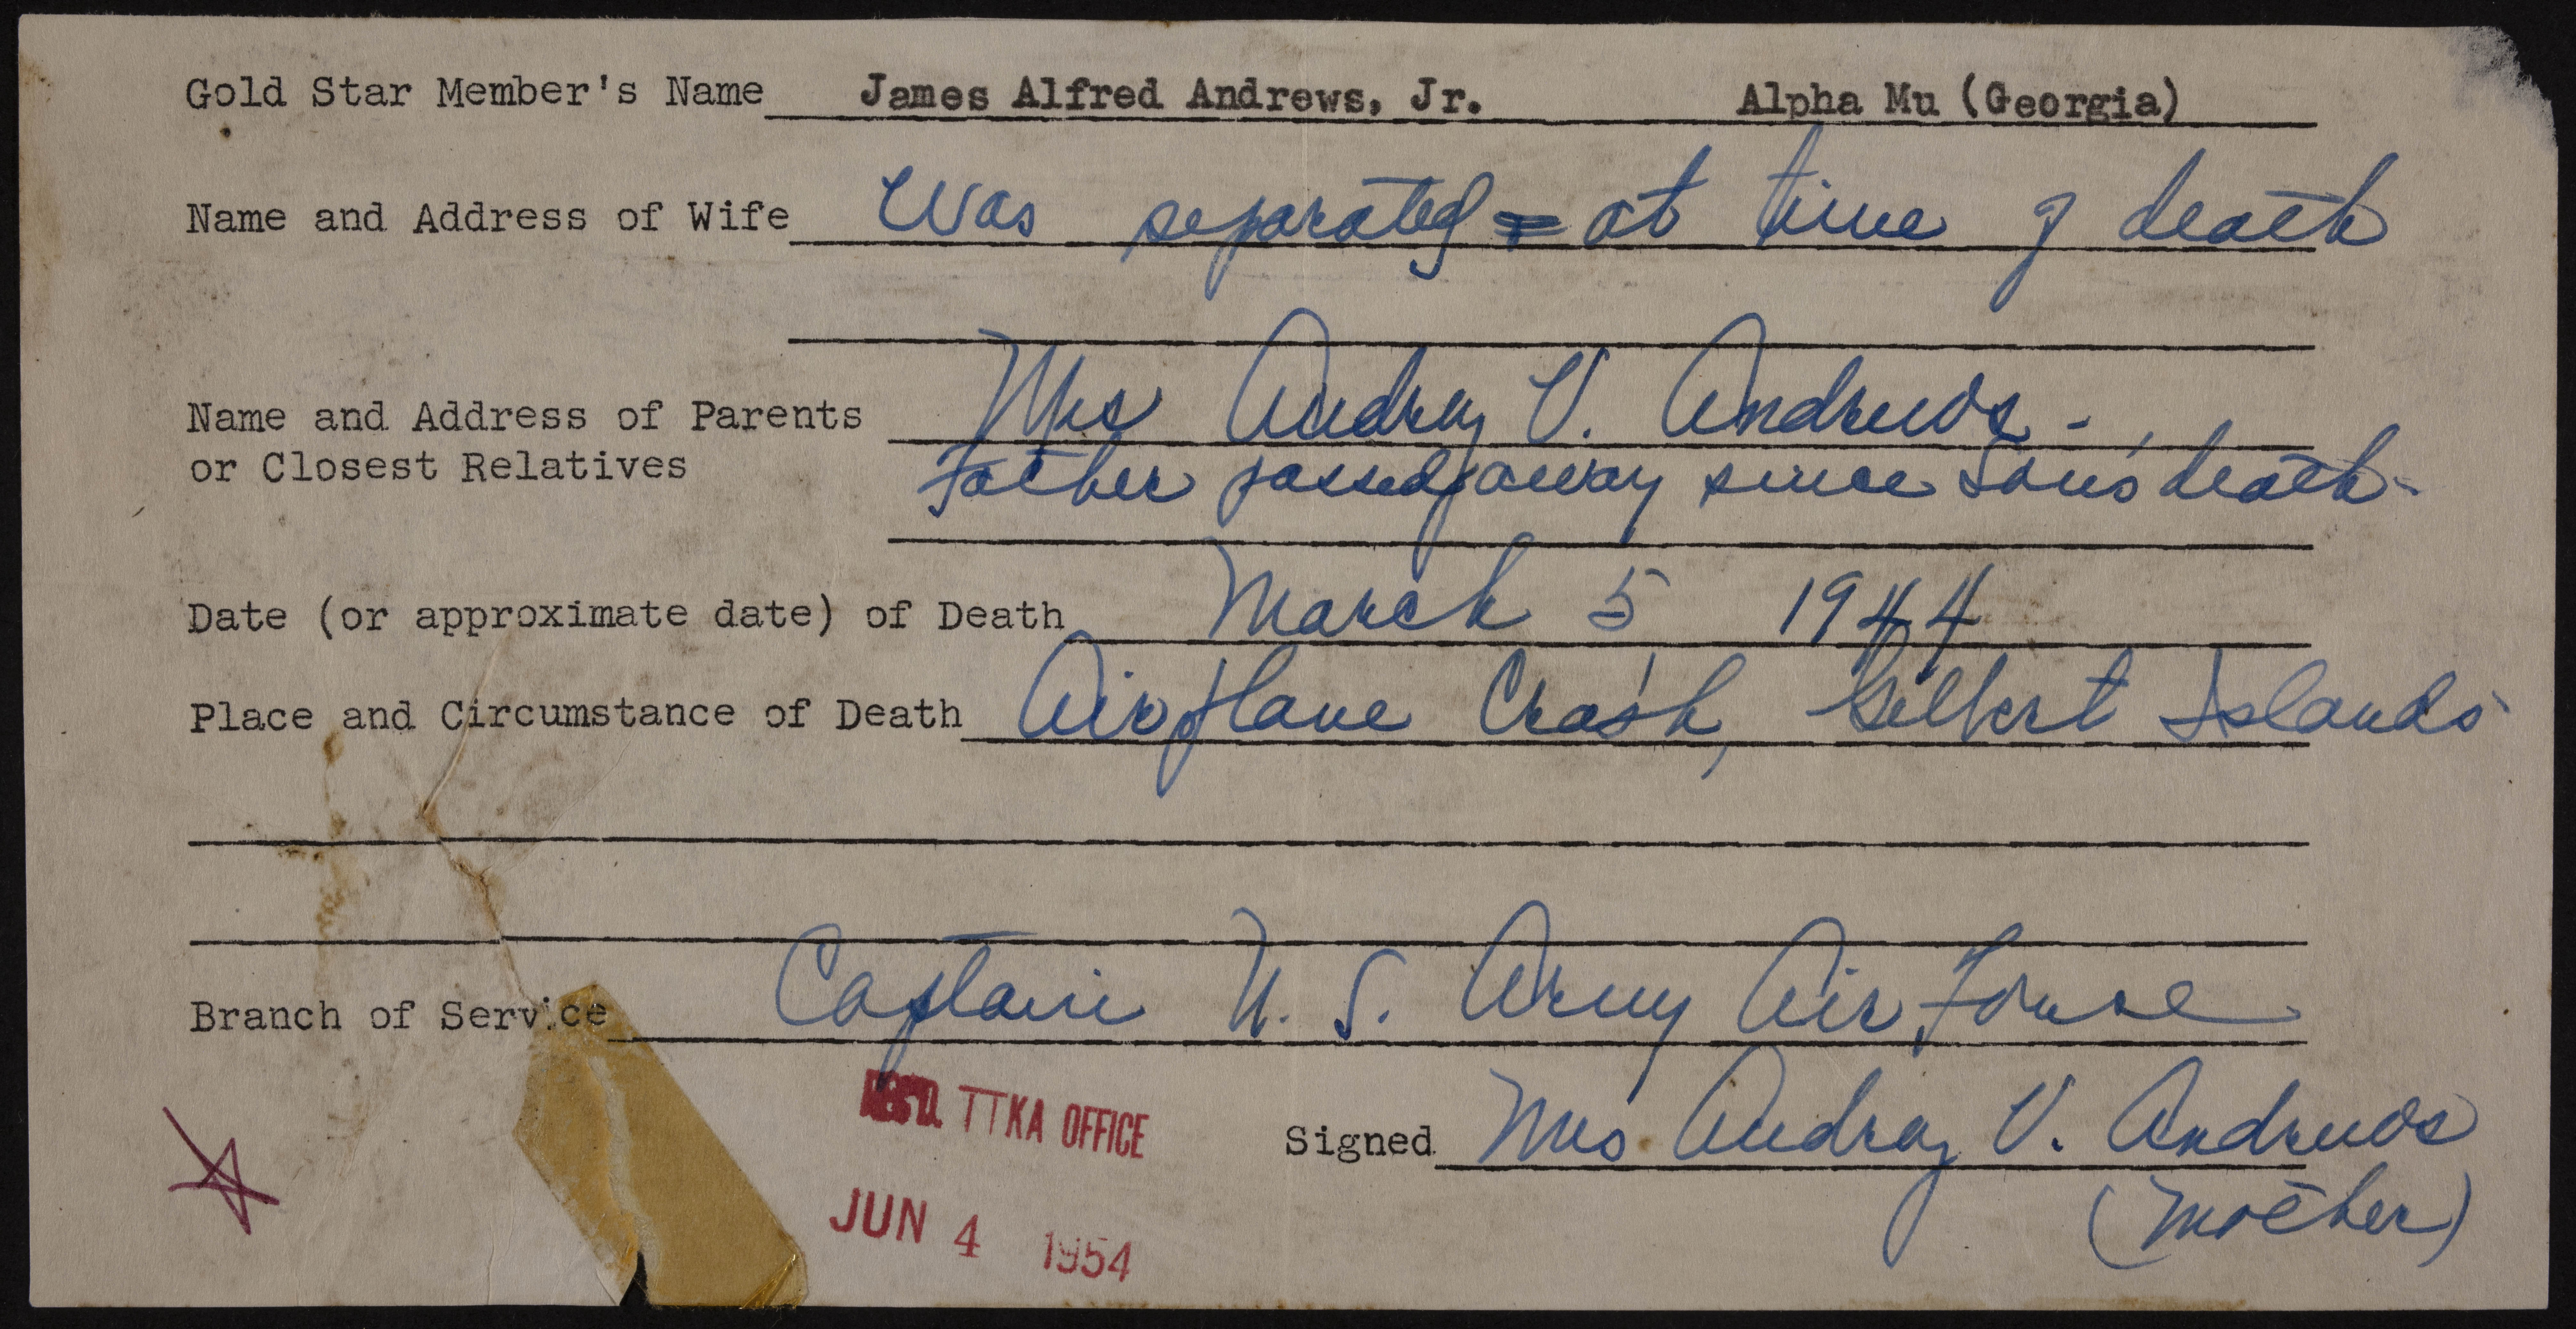 Gold Star Member's Name James Alfred Andrews, Jr. Alpha Mu (Georgia)
Name and Address of Wife Was separated at time of death
Name and Address of Parents Mrs Audray V. Andrews -
or Closest Relatives Father passed away since Son's death -
Date (or approximate date) of Death March 5 1944
Place and Circumstance of Death Airplane Crash, Gilbert Islands
Branch of Service Captain U. S. Army Air Force
REC'D. TTKA OFFICE
Signed Mrs. Audray V. Andrews
(Mother)
JUN 4 1954